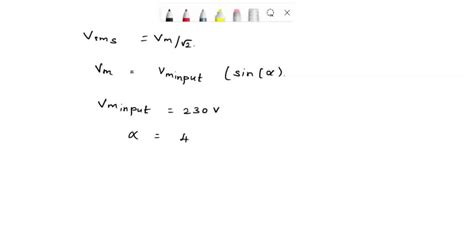 Vrms = Vm/√2.
Vm = Vm input (sin(α).
Vm input = 230 V
α = 4